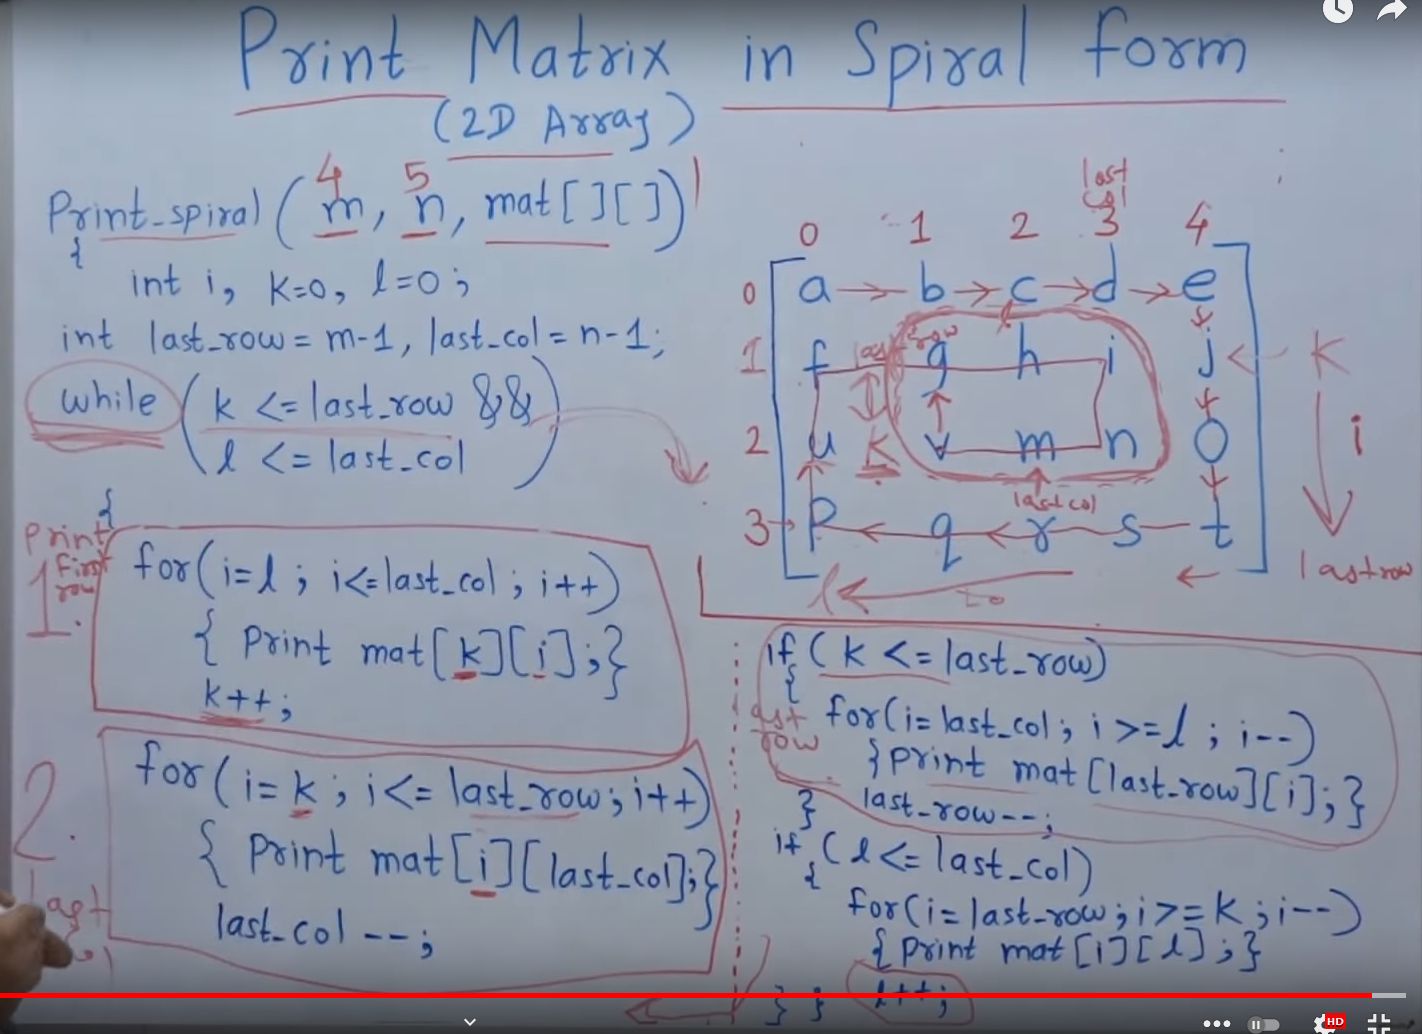 Print Matrix in Spiral form
(2D Array)
4 5
Print_spiral (m, n, mat[][])
{
int i, k=0, l=0;
int last_row = m-1, last_col = n-1;
while (k <= last_row &&
l <= last_col)
{
Print
First
row
1.
for(i=l; i<=last_col; i++)
{ Print mat[k][i];}
k++;
2.
last
for(i=k; i<=last_row; i++)
{ Print mat[i][last_col];}
last_col --;
last
col
0 1 2 3 4
0 a b c d e
1 f g h i j
2 u v m n o
3 P q r s t
last row
K
last col
K
i
lastrow
l
to
if (k <= last_row)
{
last
row
for(i=last_col; i>=l; i--)
{Print mat[last_row][i];}
last_row--;
}
if (l<=last_col)
{
for(i=last_row; i>=k; i--)
{Print mat[i][l];}
l++;
} }
HD